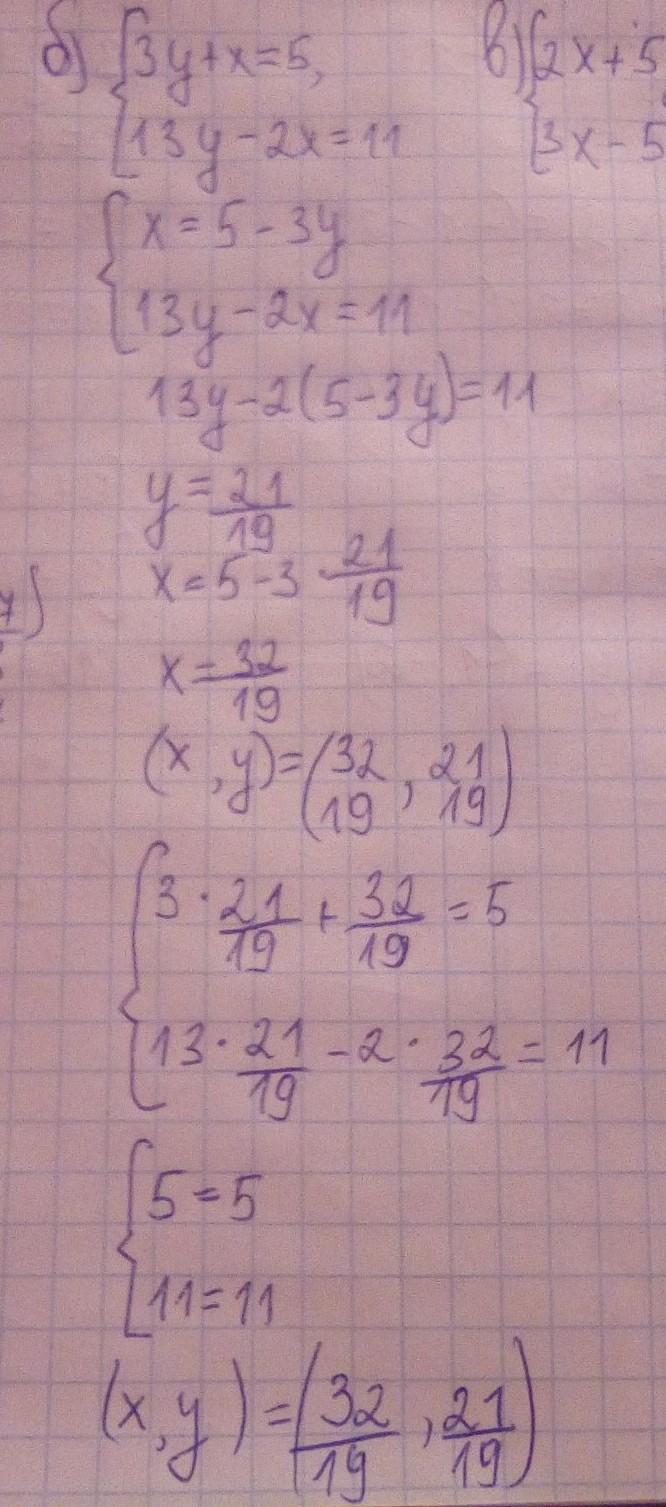 б) { 3y + x = 5,
13y - 2x = 11
в) { 2x + 5
3x - 5
{ x = 5 - 3y
13y - 2x = 11
13y - 2(5 - 3y) = 11
y = 21/19
x = 5 - 3 · 21/19
x = 32/19
(x, y) = (32/19, 21/19)
{ 3 · 21/19 + 32/19 = 5
13 · 21/19 - 2 · 32/19 = 11
{ 5 = 5
11 = 11
(x, y) = (32/19, 21/19)